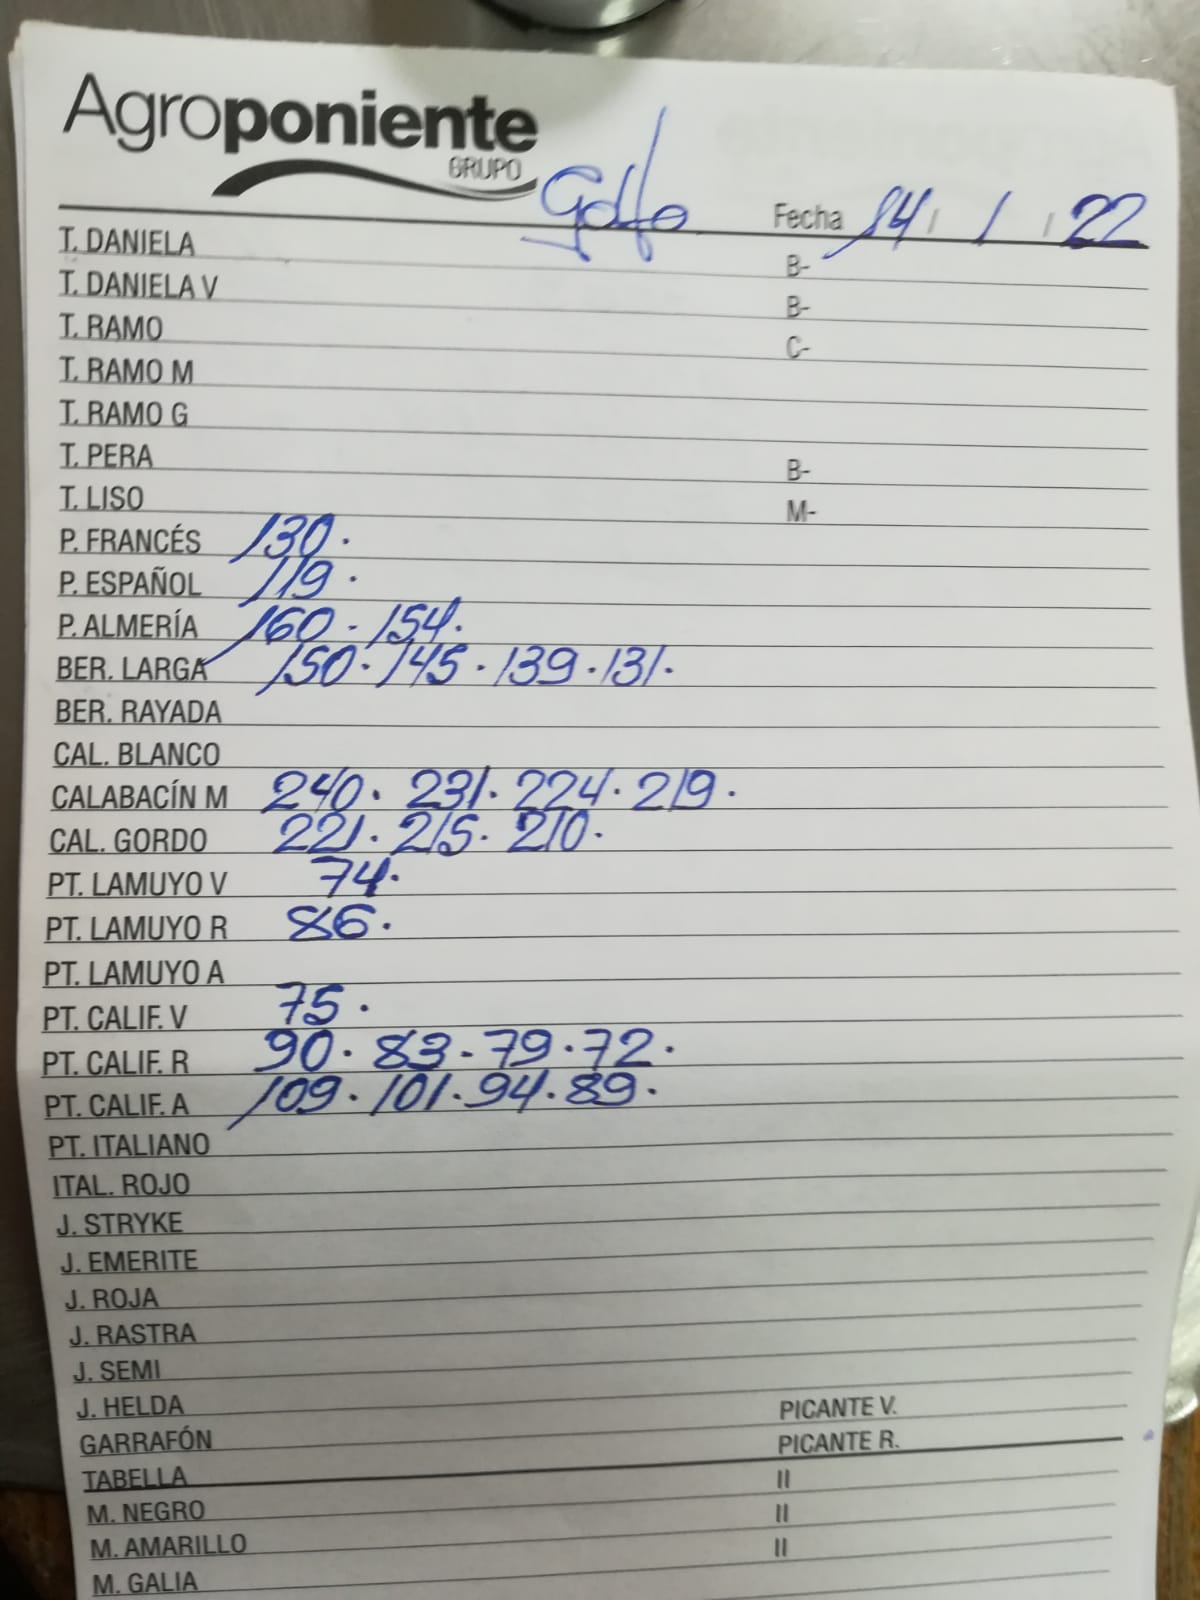 Agroponiente
GRUPO
Golfo
Fecha 14 / 1 / 22
T. DANIELA B-
T. DANIELA V B-
T. RAMO C-
T. RAMO M
T. RAMO G
T. PERA B-
T. LISO M-
P. FRANCÉS 130.
P. ESPAÑOL 119.
P. ALMERÍA 160 - 154.
BER. LARGA 150. 145. 139. 131.
BER. RAYADA
CAL. BLANCO
CALABACÍN M 240. 231. 224. 219.
CAL. GORDO 221. 215. 210.
PT. LAMUYO V 74.
PT. LAMUYO R 86.
PT. LAMUYO A
PT. CALIF. V 75.
PT. CALIF. R 90. 83 - 79. 72.
PT. CALIF. A 109. 101. 94. 89.
PT. ITALIANO
ITAL. ROJO
J. STRYKE
J. EMERITE
J. ROJA
J. RASTRA
J. SEMI
J. HELDA PICANTE V.
GARRAFÓN PICANTE R.
TABELLA II
M. NEGRO II
M. AMARILLO II
M. GALIA